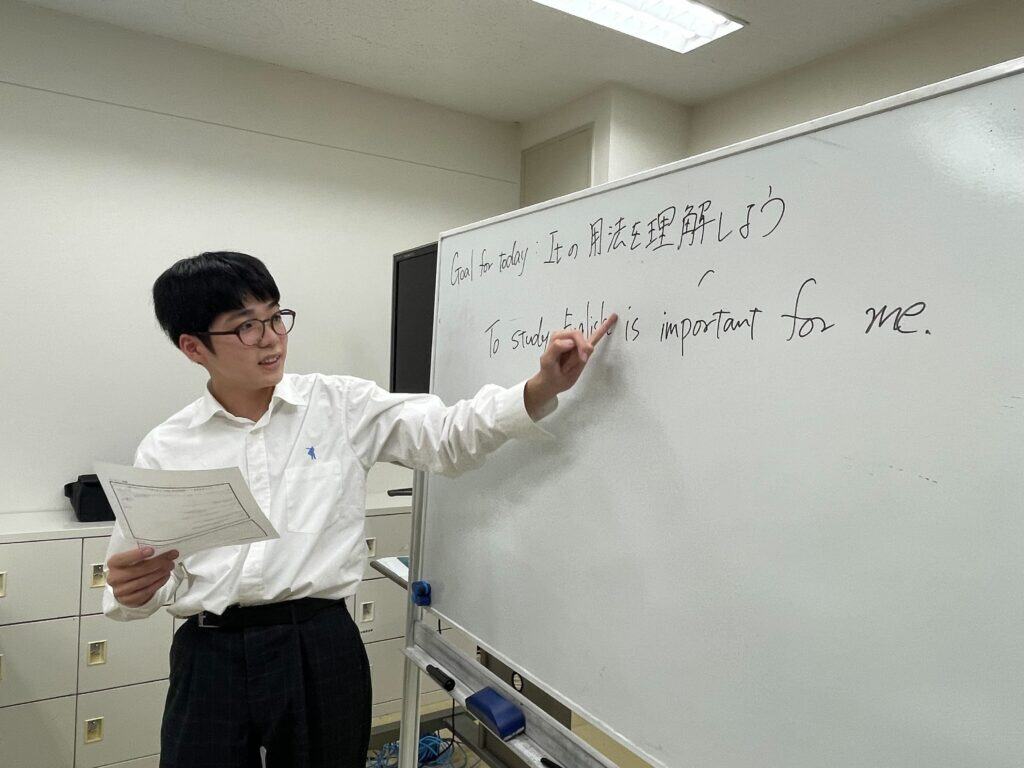 Goal for today : Itの用法を理解しよう
To study English is important for me.